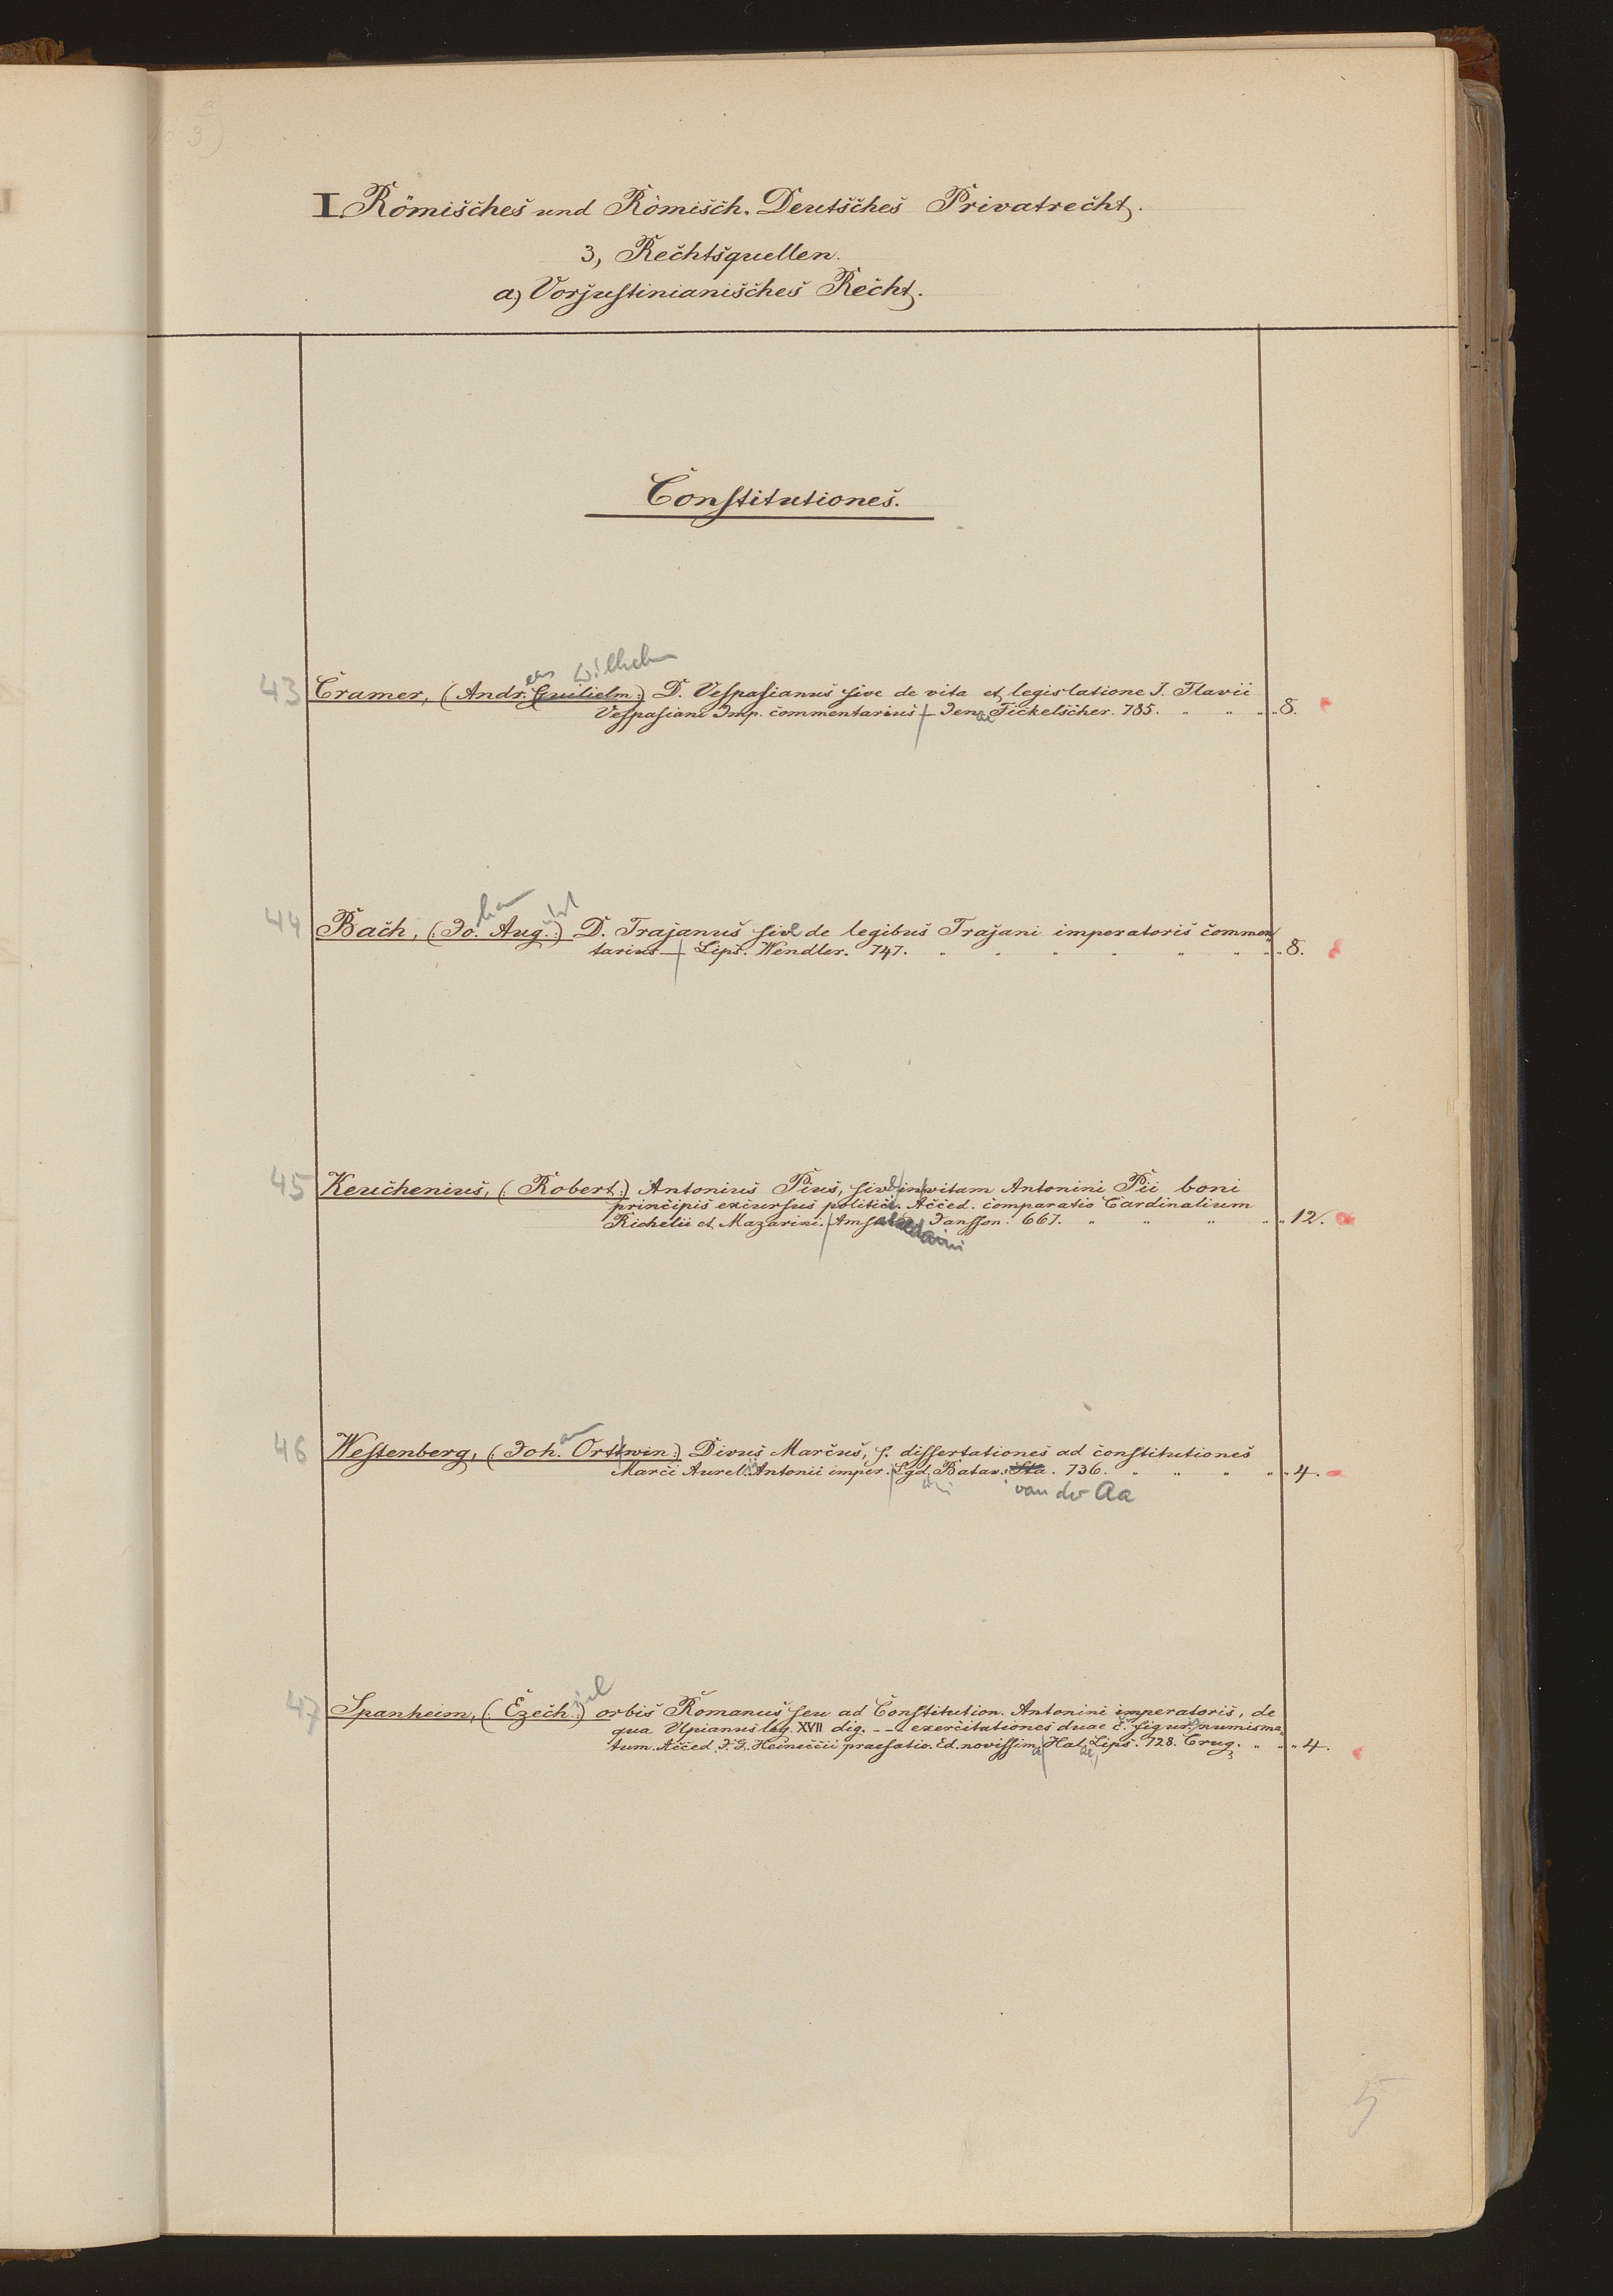 I. Römisches und Römisch-Deutsches Privatrecht.
3, Rechtsquellen.
a) Vorjustinianisches Recht.
Constitutiones.
eas Wilhelm
43 Cramer, (Andr. Guilielm:) D. Vespasianus sive de vita et legislatione T. Flavii
Vespasiani Imp. commentarius — Jenae Fickelscher. 785. " " " " 8.
han ust
44 Bach, (: Jo. Aug. :) D. Trajanus sive de legibus Trajani imperatoris commen
tarius — Lips. Wendler. 747. " " " " " " " 8.
45 Keuchenius, (: Robert:) Antonius Pius, sive in vitam Antonini Pii boni
principis excursus politici. Acced. comparatio Cardinalium
Richelii et Mazarini. Amst Jansson. 667. " " " " " 12.
46 Westenberg, (: Joh. Ortwin:) Divus Marcus, s. dissertationes ad constitutiones
Marci Aurel. Antonii imper. Lgd. Batav. 736. " " " " " 4.
van der Aa
iel
47 Spanheim, (: Ezech:) orbis Romanus seu ad Constitution. Antonini imperatoris, de
qua Ulpianus leg. XVII dig. -- exercitationes duae c. figur. numisma
tum. Acced. J. G. Heineccii praefatio. Ed. novissima Halae, Lips. 728. Crug. " " " 4.
5